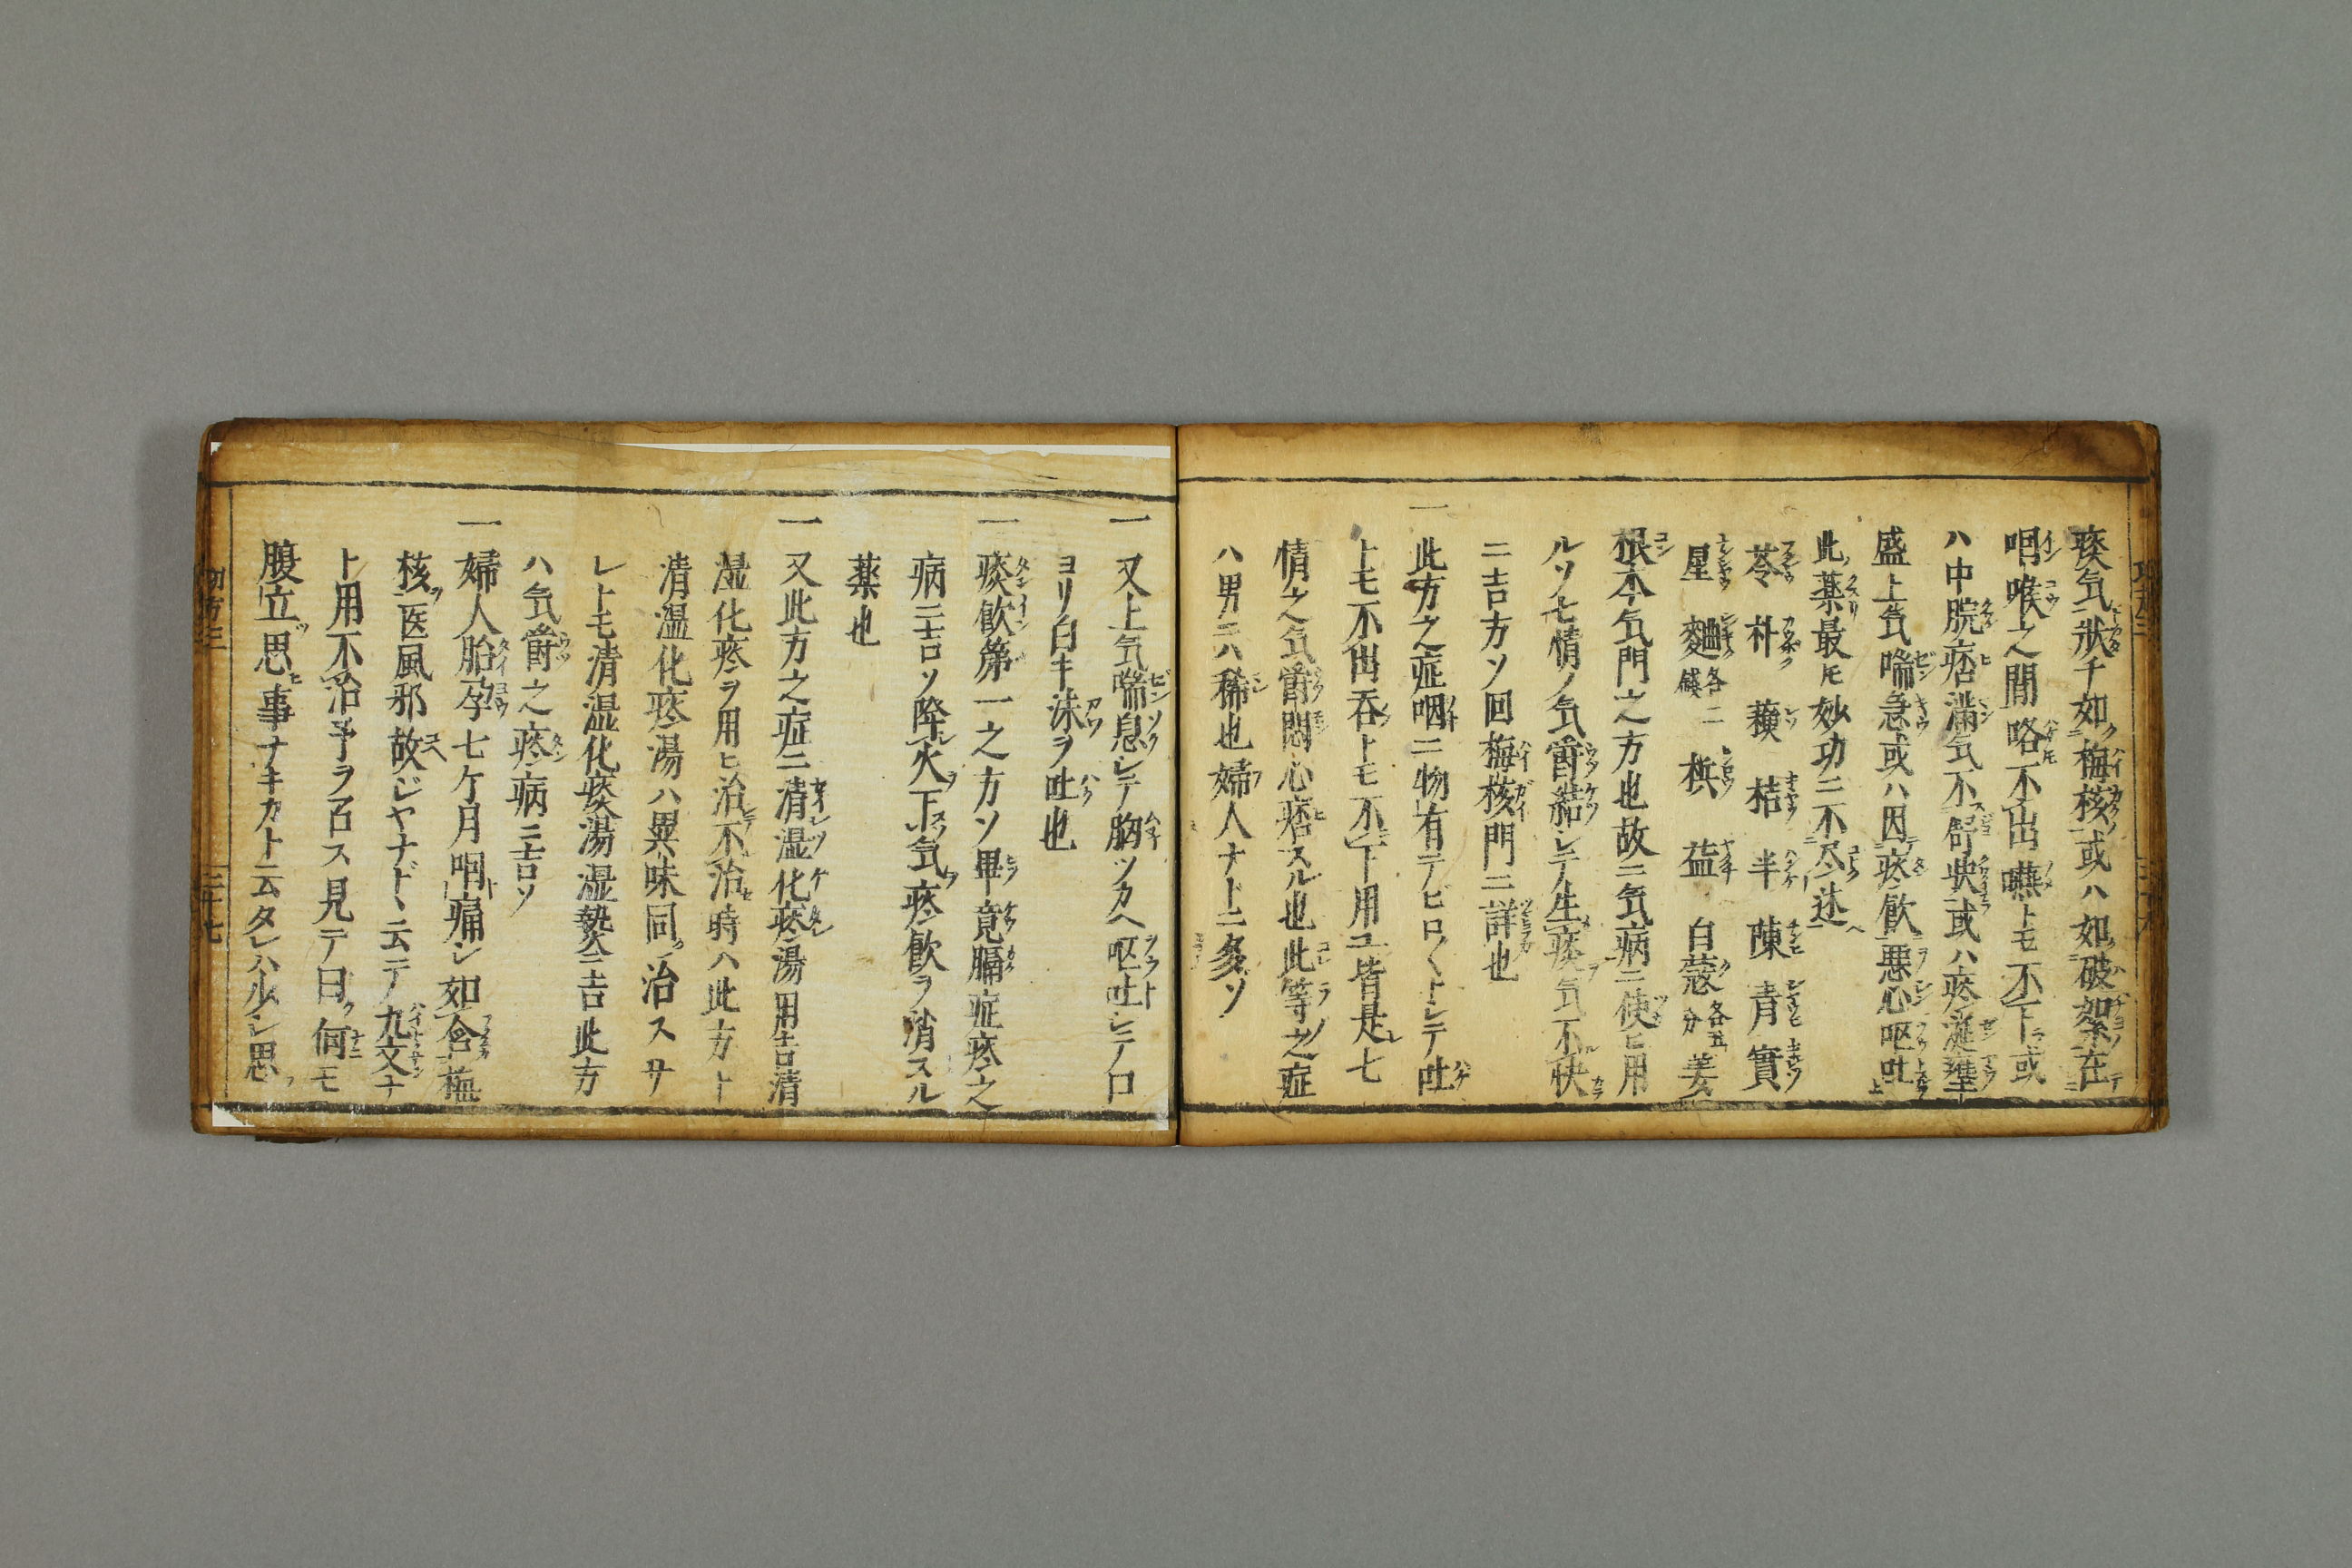 痰気ノ状チ如ク梅核ノ或ハ如ク破絮ノ在テ
咽喉之間ニ咯トモ不出嚥トモ不下ラ或
ハ中脘痞満気不舒快或ハ痰涎壅
盛上気喘急或ハ因痰飲悪心呕吐
此ノ薬最モ妙功ニ不尽述ヘ
苓 朴 蘓 桔 半 陳 青 實
星 麯 各二戔 梹 益 白蔻 各五分 姜
根本気門之方也故ニ気病ニ使ヒ用
ルソ七情ノ気欝結シテ生痰ヲ気不快
ニ吉方ソ回梅核門ニ詳也
一 此方之症咽ニ物有テヒロ〱トシテ吐
トモ不出呑トモ不下用ユ皆是レ七
情之気欝悶心痞スル也此等ノ之症
ハ男ニハ稀也婦人ナトニ多ソ
一 又上気喘息シテ胸ツカヘ呕吐シテ口
ヨリ白キ沫ヲ吐也
一 痰飲第一之方ソ畢竟膈症痰之
病ニ吉ソ降火ヲ下気ヲ痰飲ヲ消スル
薬也
一 又此方之症ニ清湿化痰湯用吉清
湿化痰ヲ用ヒ治不治時ハ此方ト
清湿化痰湯ハ異味同治スサ
レトモ清湿化痰湯湿熱ニ吉此方
ハ気欝之痰病ニ吉ソ
一 婦人胎孕七ケ月咽痛シ如含梅
核ヲ医風邪故ジヤナド云テ九文ナ
ト用不治予ヲ召ス見テ曰ク何モ
腹立思事ナキカト云タレハ少シ思
切方三 三十七